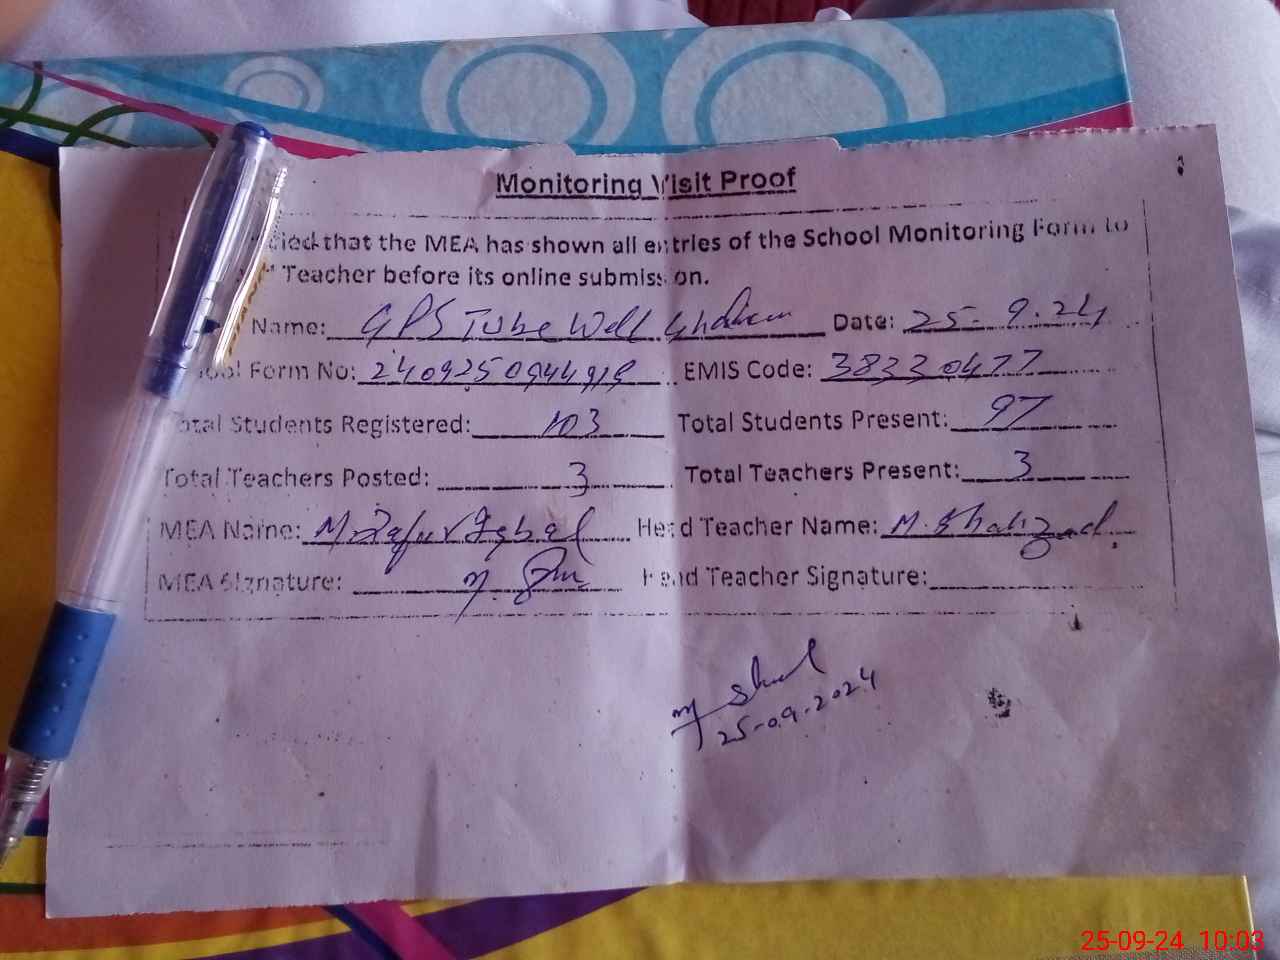 Monitoring Visit Proof
that the MEA has shown all entries of the School Monitoring Form to
Teacher before its online submission.
Name: GPS Tube Well Date: 25-9.24
Form No: EMIS Code: 38330477
Total Students Registered: 103 Total Students Present: 97
Total Teachers Posted: 3 Total Teachers Present: 3
MEA Name: M Zafar Iqbal Head Teacher Name: M. Shahzad
MEA Signature: Head Teacher Signature:
25-09-2024
25-09-24 10:03